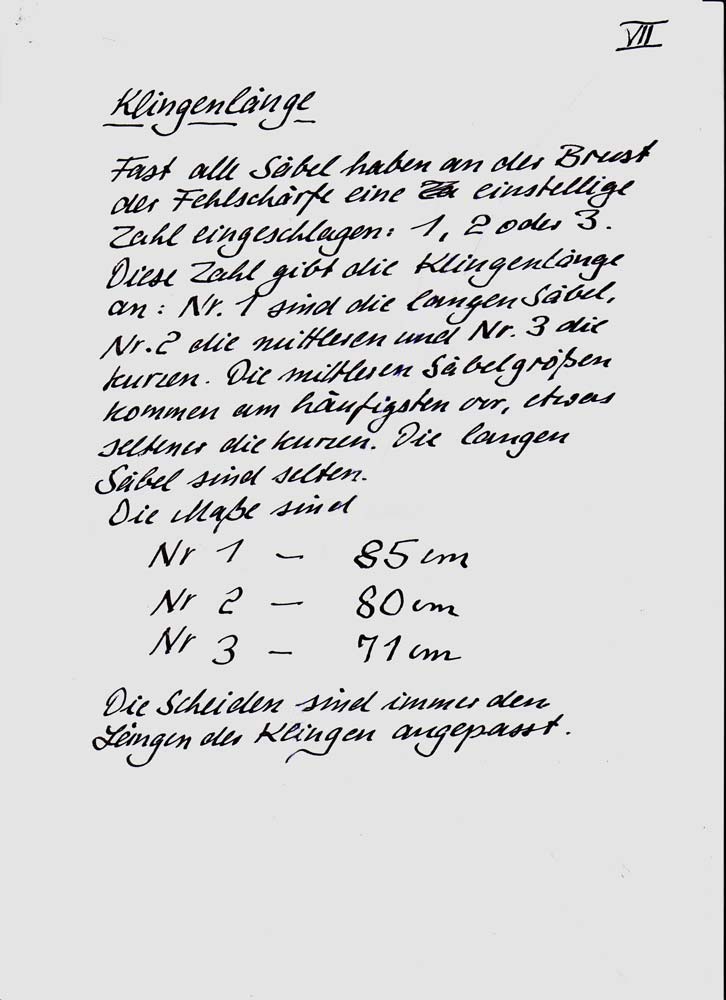 VII
Klingenlänge
Fast alle Säbel haben an der Brust
der Fehlschärfe eine einstellige
Zahl eingeschlagen: 1, 2 oder 3.
Diese Zahl gibt die Klingenlänge
an: Nr. 1 sind die langen Säbel,
Nr. 2 die mittleren und Nr. 3 die
kurzen. Die mittleren Säbelgrößen
kommen am häufigsten vor, etwas
seltener die kurzen. Die langen
Säbel sind selten.
Die Maße sind
Nr 1 – 85 cm
Nr 2 – 80 cm
Nr 3 – 71 cm
Die Scheiden sind immer den
Längen der Klingen angepasst.